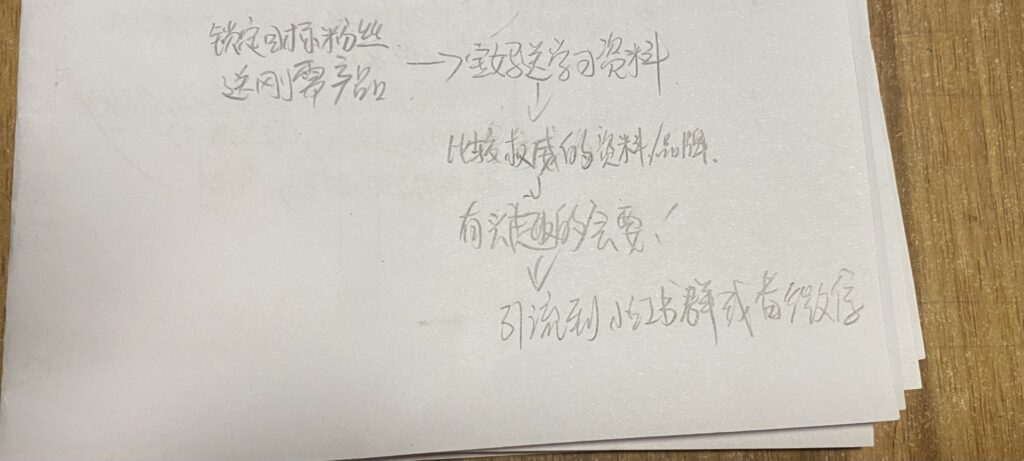 锁定目标粉丝
送刚需产品 → 宝妈送学习资料
↓
比较权威的资料/品牌、
↓
有兴趣的会要！
↓
引流到小红书群或者微信